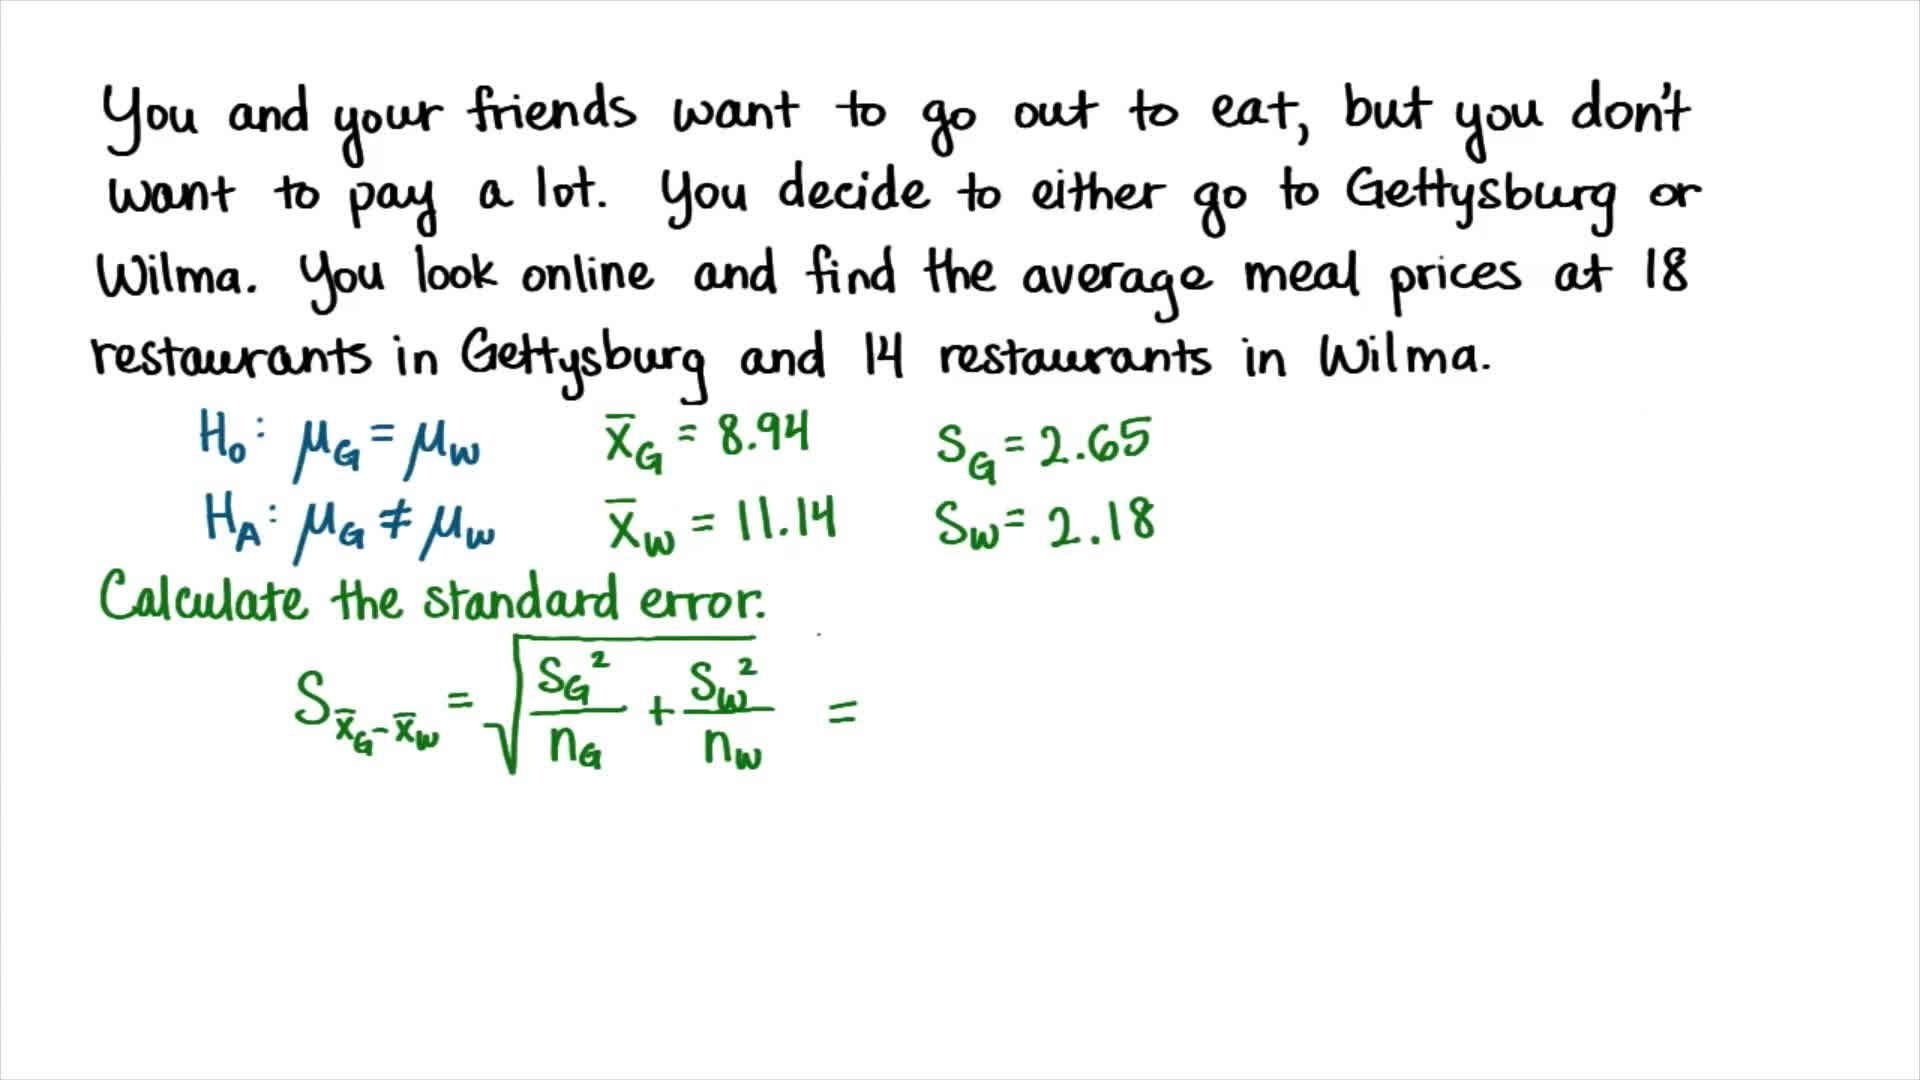 You and your friends want to go out to eat, but you don't
want to pay a lot. You decide to either go to Gettysburg or
Wilma. You look online and find the average meal prices at 18
restaurants in Gettysburg and 14 restaurants in Wilma.
H₀: μ_G = μ_W   x̄_G = 8.94   S_G = 2.65
H_A: μ_G ≠ μ_W   x̄_W = 11.14   S_W = 2.18
Calculate the standard error.
S_x̄_G-x̄_W = √(S_G²/n_G + S_W²/n_W) =